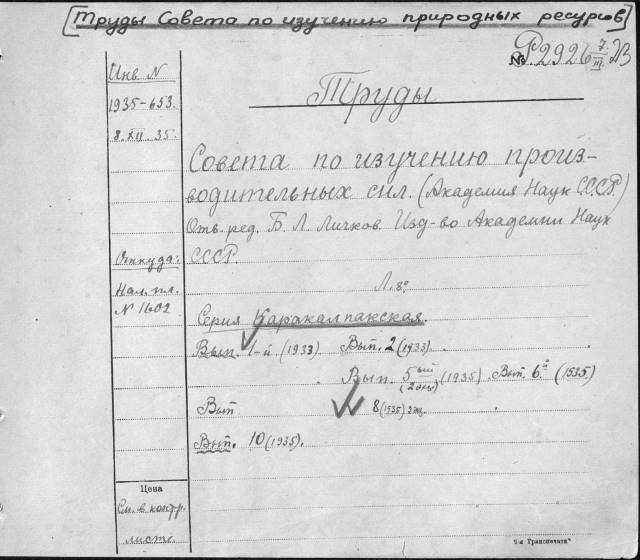 [Труды Совета по изучению природных ресурсов]
№ Р.2926 7/III 23
Инв. N
1935-653.
8.XII.35.
Труды
Совета по изучению произ-
водительных сил. (Академия Наук СССР.)
Отв. ред. Б. Л. Личков. Изд-во Академии Наук
СССР.
Откуда:
Л. 8º
Нал. пл.
N 1602
Серия Каракалпакская.
Вып. 1-й (1933). Вып. 2 (1933).
Вып. 5ый (1935). Вып. 6й (1935)
(2 экз.)
Вып 8 (1935) 2 экз.
Вып. 10 (1935).
Цена
См. в контр.
листе.